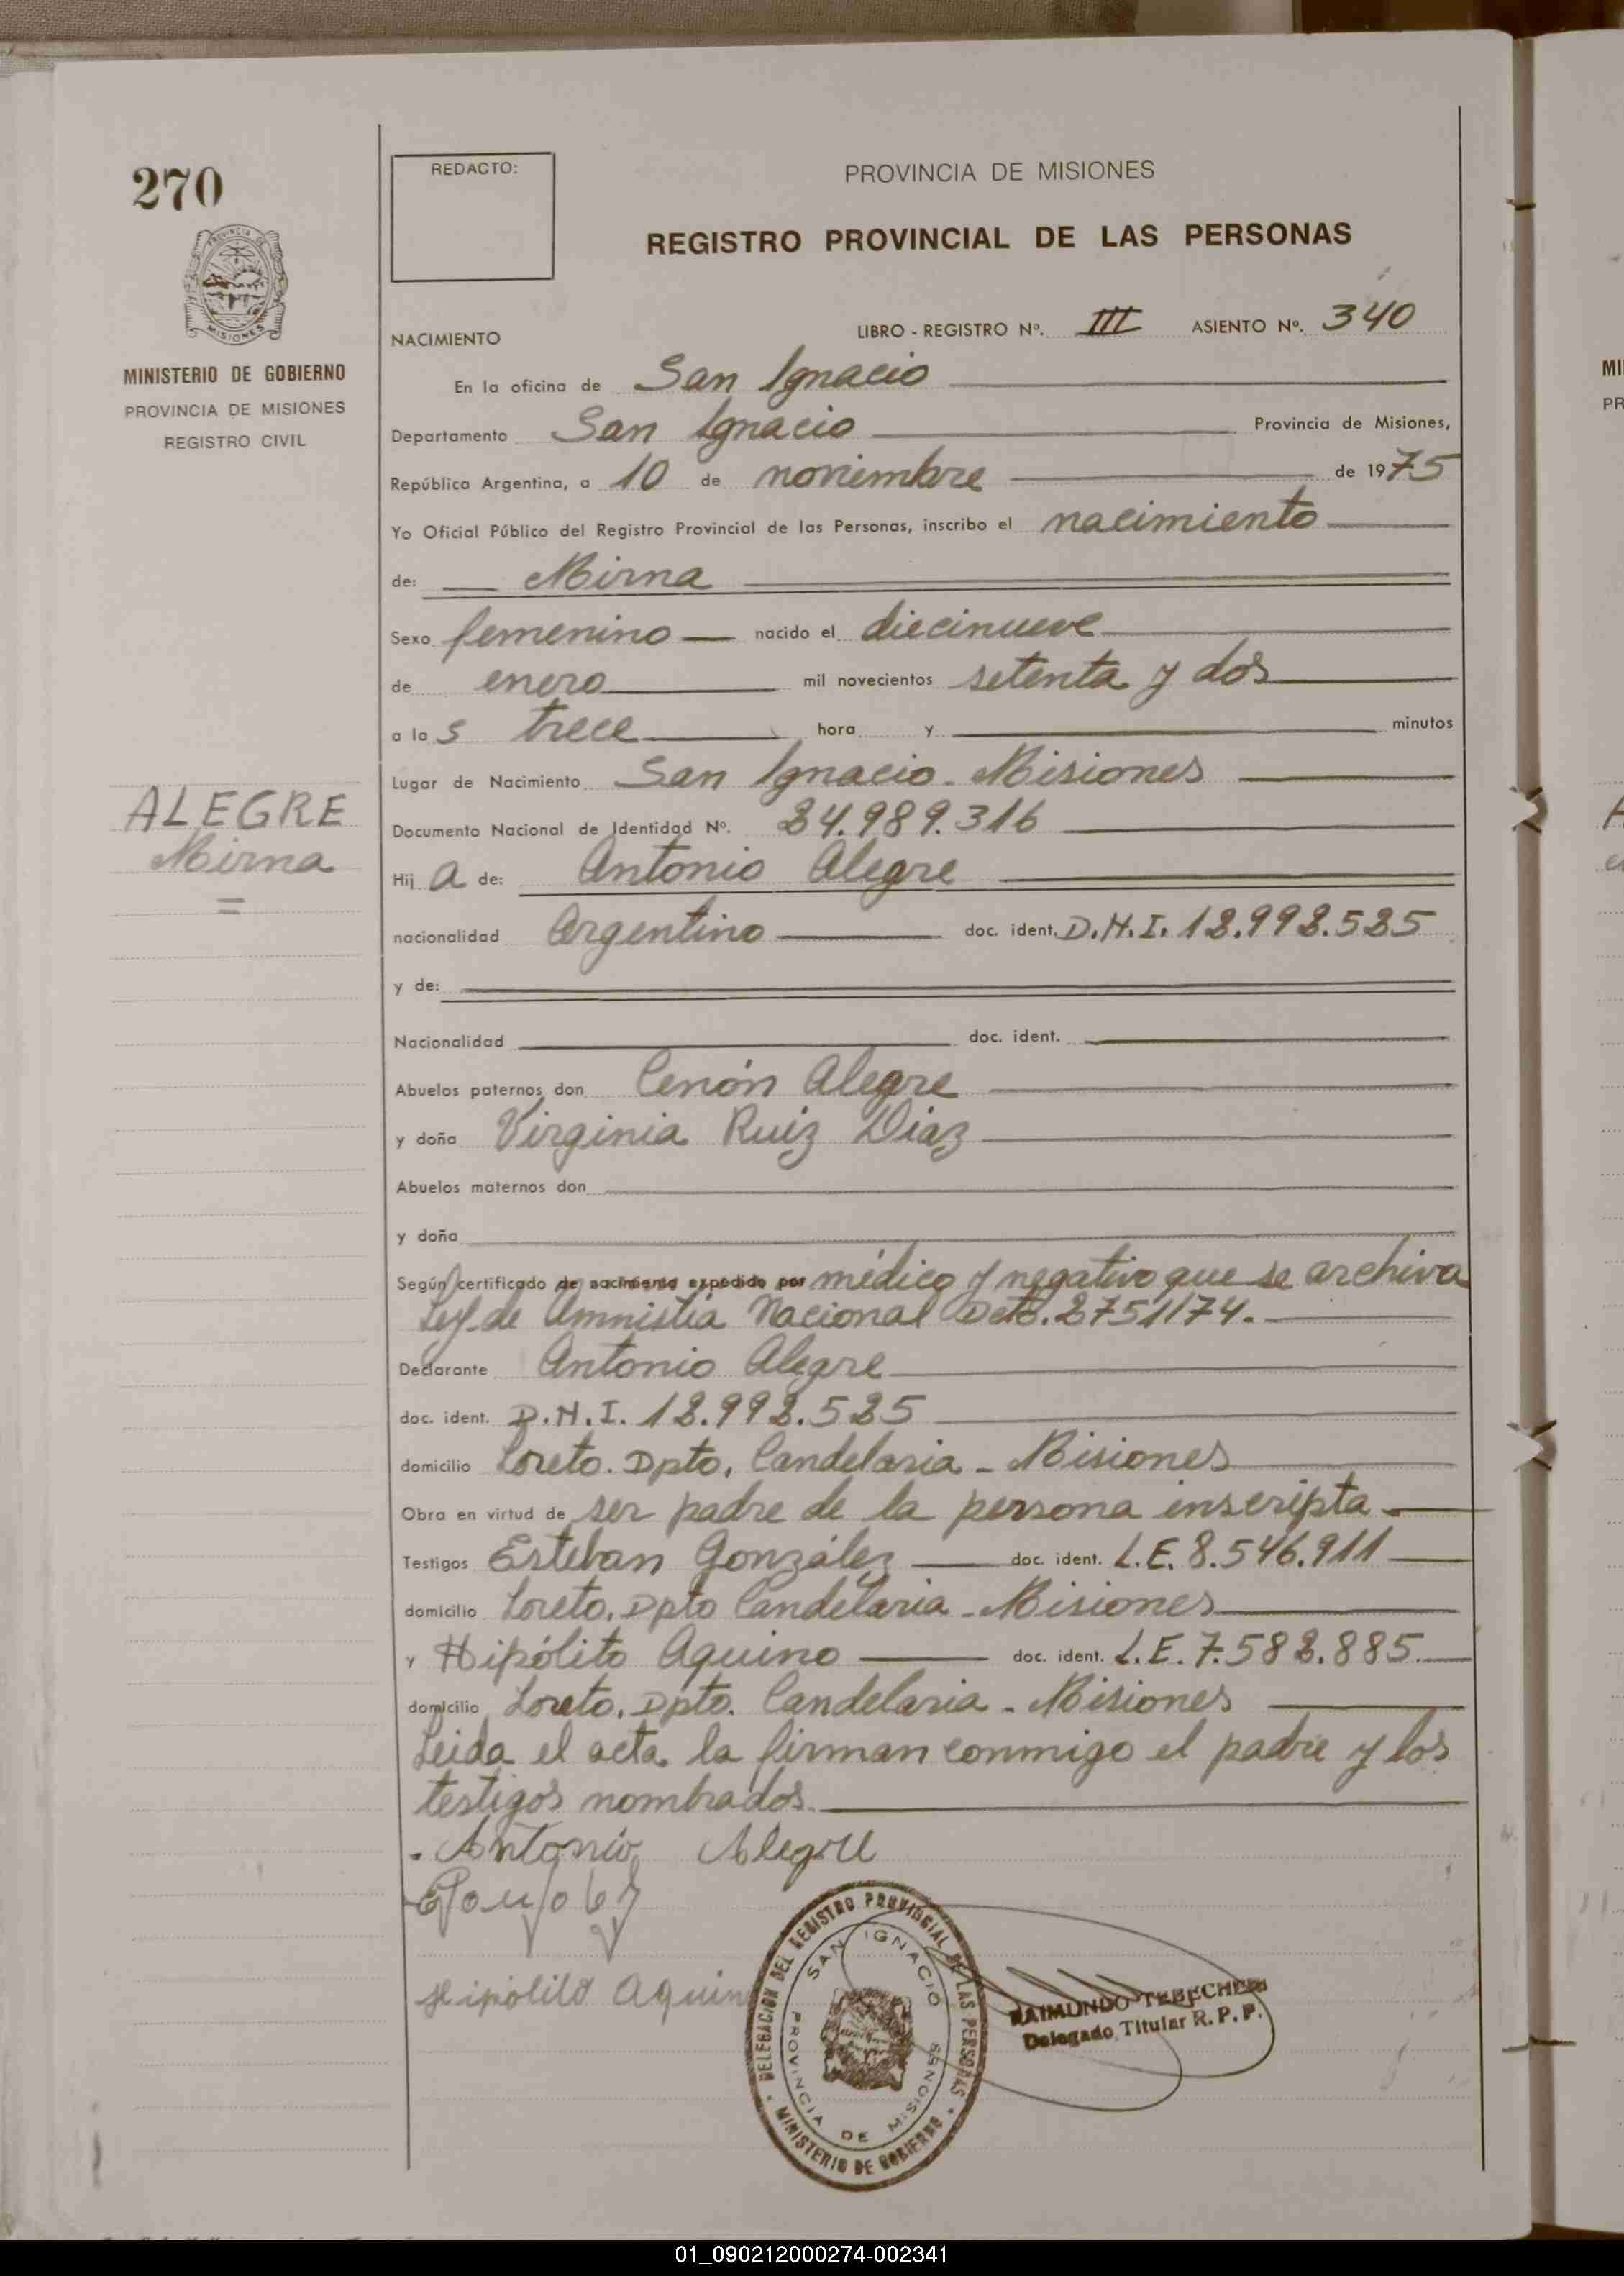 270
REDACTO:
PROVINCIA DE MISIONES
REGISTRO PROVINCIAL DE LAS PERSONAS
MISIONES
MINISTERIO DE GOBIERNO
PROVINCIA DE MISIONES
REGISTRO CIVIL
NACIMIENTO LIBRO - REGISTRO Nº. III ASIENTO Nº. 340
En la oficina de San Ignacio
Departamento San Ignacio Provincia de Misiones,
República Argentina, a 10 de noviembre de 1975
Yo Oficial Público del Registro Provincial de las Personas, inscribo el nacimiento
de: Mirna
Sexo femenino nacido el diecinueve
de enero mil novecientos setenta y dos
a las trece hora y minutos
Lugar de Nacimiento San Ignacio - Misiones
ALEGRE
Mirna
Documento Nacional de Identidad Nº. 24.989.316
Hija de: Antonio Alegre
nacionalidad Argentino doc. ident. D.N.I. 12.992.525
y de:
Nacionalidad doc. ident.
Abuelos paternos don Cenón Alegre
y doña Virginia Ruiz Diaz
Abuelos maternos don
y doña
Según certificado de nacimiento expedido por médico y negativo que se archiva
Ley de Amnistia Nacional Dcto. 2751/74.
Declarante Antonio Alegre
doc. ident. D.N.I. 12.992.525
domicilio Loreto. Dpto. Candelaria - Misiones
Obra en virtud de ser padre de la persona inscripta.
Testigos Esteban González doc. ident. L.E. 8.546.911
domicilio Loreto. Dpto Candelaria - Misiones
y Hipólito Aquino doc. ident. L.E. 7.582.885.
domicilio Loreto. Dpto. Candelaria - Misiones
Leida el acta la firman conmigo el padre y los
testigos nombrados.
Antonio Alegre
Hipolito Aquin
DELEGACION DEL REGISTRO PROVINCIAL DE LAS PERSONAS
SAN IGNACIO
PROVINCIA DE MISIONES
MINISTERIO DE GOBIERNO
RAIMUNDO
Delegado Titular R. P. P.
MI
PR
01_090212000274-002341